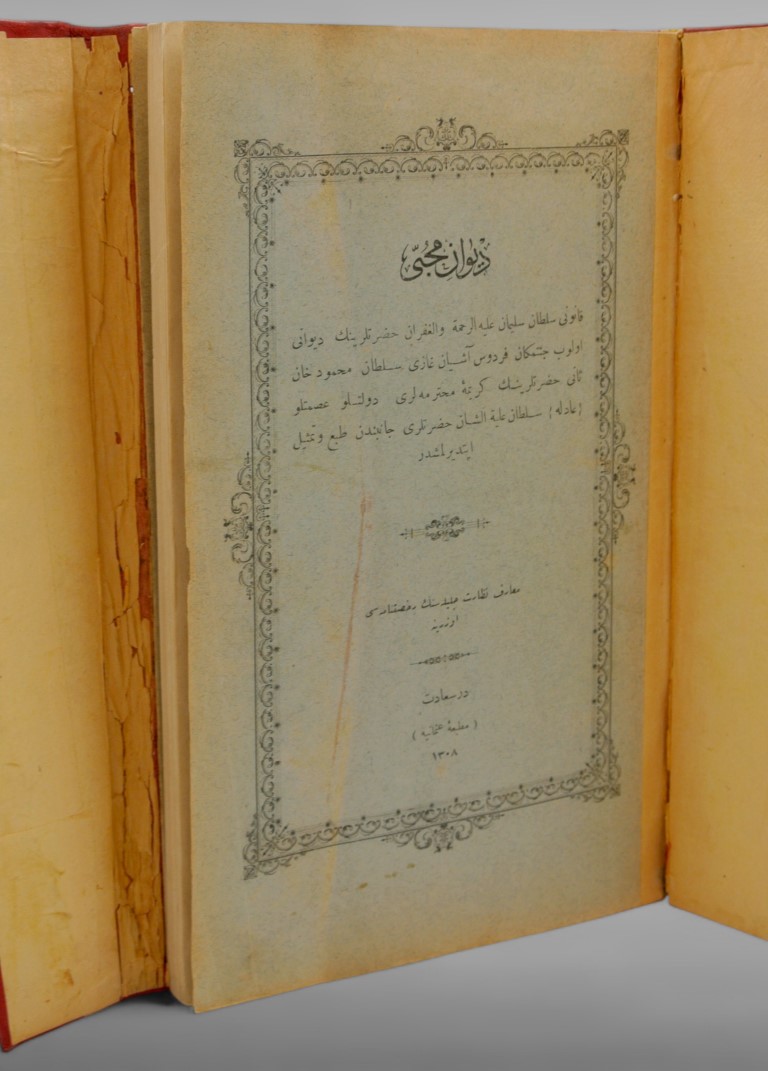 ديوان محبّى
قانونى سلطان سليمان عليه الرحمة والغفران حضرتلرينك ديوانى
اولوب جنتمكان فردوس آشيان غازى سلطان محمود خان
ثانى حضرتلرينك كريمهٔ محترمه لرى دولتلو عصمتلو
{عادله} سلطان علية الشان حضرتلرى جانبندن طبع وتمثيل
ايتديرلمشدر
معارف نظارت جليله سنك رخصتنامه سى
اوزرينه
در سعادت
(مطبعهٔ عثمانيه)
١٣٠٨